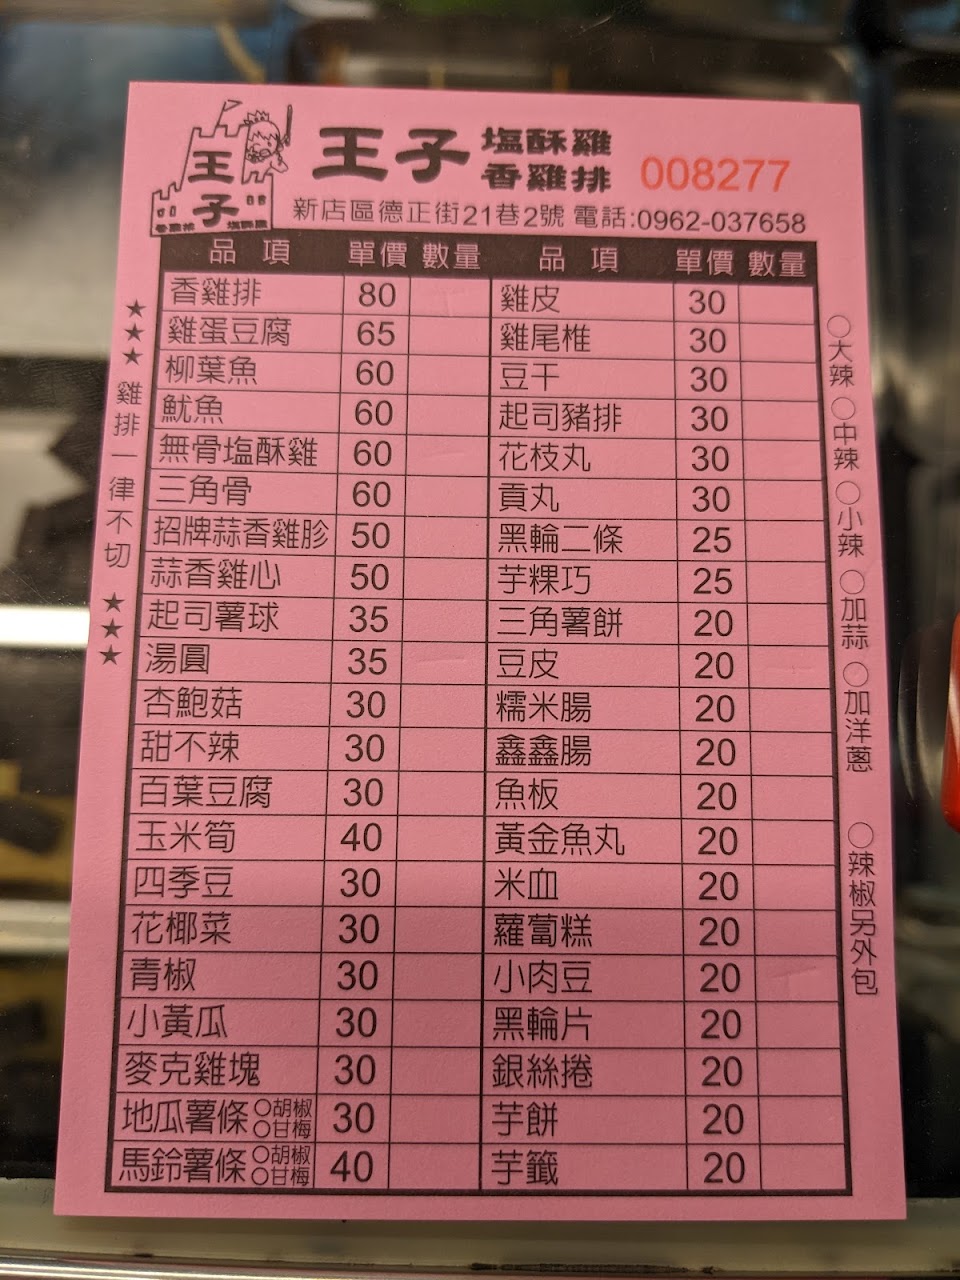 王子 塩酥雞
香雞排 008277
王子
香雞排 塩酥雞
新店區德正街21巷2號 電話:0962-037658
品項 單價 數量 品項 單價 數量
香雞排 80 雞皮 30
雞蛋豆腐 65 雞尾椎 30
柳葉魚 60 豆干 30
魷魚 60 起司豬排 30
無骨塩酥雞 60 花枝丸 30
三角骨 60 貢丸 30
招牌蒜香雞胗 50 黑輪二條 25
蒜香雞心 50 芋粿巧 25
起司薯球 35 三角薯餅 20
湯圓 35 豆皮 20
杏鮑菇 30 糯米腸 20
甜不辣 30 鑫鑫腸 20
百葉豆腐 30 魚板 20
玉米筍 40 黃金魚丸 20
四季豆 30 米血 20
花椰菜 30 蘿蔔糕 20
青椒 30 小肉豆 20
小黃瓜 30 黑輪片 20
麥克雞塊 30 銀絲捲 20
地瓜薯條 ○胡椒 ○甘梅 30 芋餅 20
馬鈴薯條 ○胡椒 ○甘梅 40 芋籤 20
★★★雞排一律不切★★★
○大辣 ○中辣 ○小辣 ○加蒜 ○加洋蔥 ○辣椒另外包